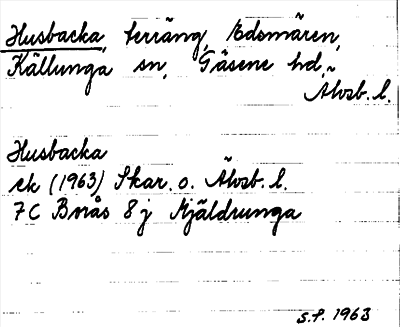 Husbacka, terräng, Edsmären,
Källunga sn, Gäsene hd,
Älvsb. l.
Husbacka
ek (1963) Skar. o. Älvsb. l.
7C Borås 8 j Mjäldrunga
S.F. 1963